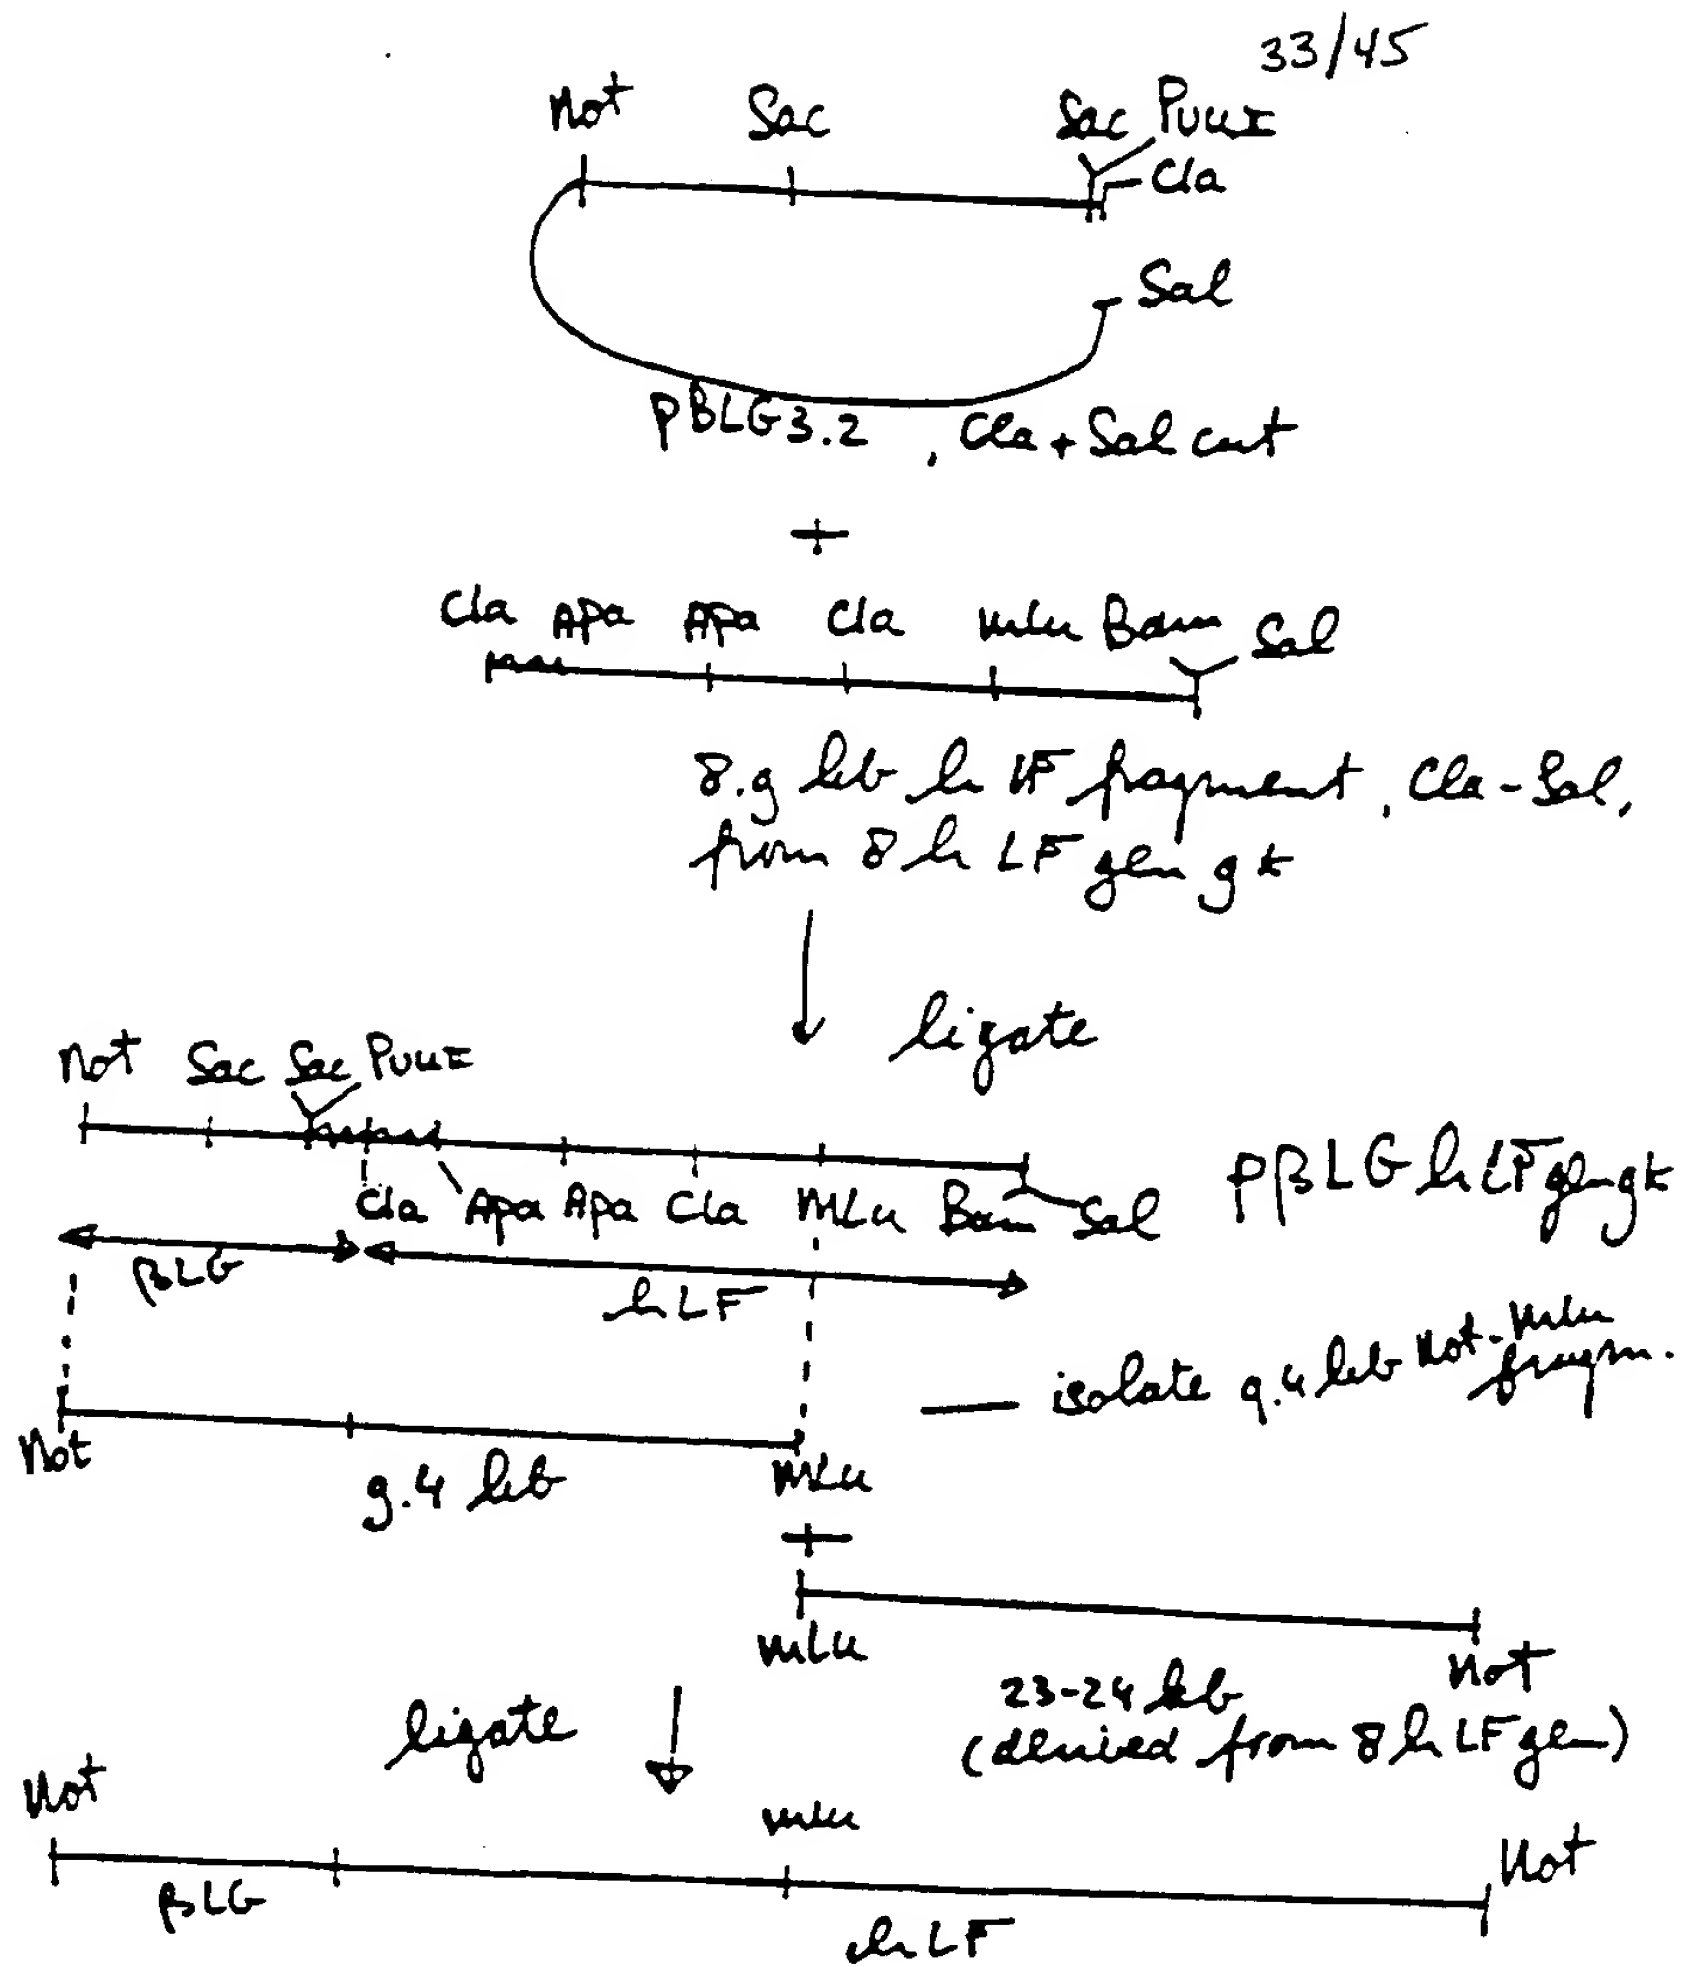 33/45
Not Sac Sac PvuII
Cla
Sal
pBLG3.2, Cla + Sal cut
+
Cla Apa Apa Cla Mlu Bam Sal
8.9 kb hLF fragment, Cla-Sal,
from 8hLFgen 9k
ligate
Not Sac Sac PvuII
Cla Apa Apa Cla MLu Bam Sal
pβLGhLFgen9k
βLG
hLF
isolate 9.4 kb Not-Mlu
fragm.
Not
9.4 kb
MLu
+
MLu
Not
23-24 kb
(derived from 8hLFgen)
ligate
Not
Mlu
Not
βLG
hLF